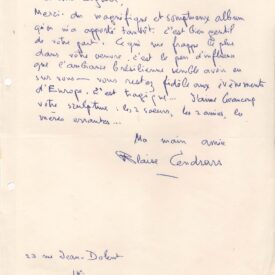 Merci du magnifique et somptueux album
qu'on m'a apporté tantôt. C'est bien gentil
de votre part. Ce qui me frappe le plus
dans votre œuvre, c'est le peu d'influence
que l'ambiance brésilienne semble avoir eu
sur vous — vous restez fidèle aux événements
d'Europe. C'est tragique... J'aime beaucoup
votre sculpture : les 2 sœurs, les 2 amies, les
mères errantes...
Ma main amie
Blaise Cendrars
23 rue Jean-Dolent